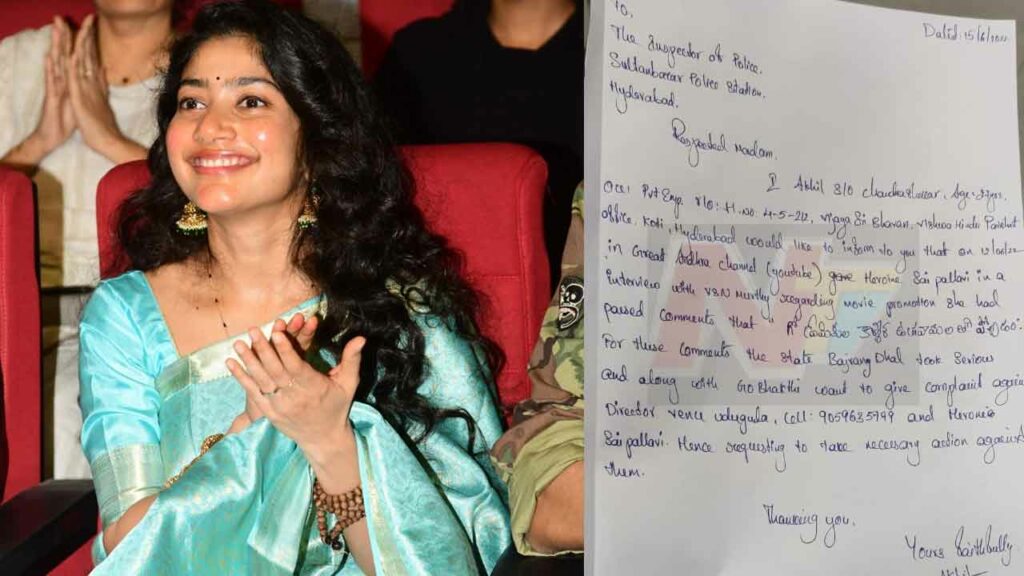 To,
The Inspector of Police.
Sultanbazar Police Station.
Hyderabad.
Respected Madam.
I Akhil S/O Chandrashekar,
Occ: Pvt Emp. r/o: H.No. 4-5-212, Vigya Sri Bhavan, Vishwa Hindu Parishat
office, Koti, Hyderabad would like to inform to you that on
in Great Andhra channel (youtube) gave Heroine Sai pallavi in a
interview with VSN Murthy regarding movie promotion she had
passed comments that
For these comments the state Bajrang Dhal took Serious
and along with Gobhakthi want to give complaint again
Director venu udugula, cell: 9059635799 and Heronie
Sai pallavi. Hence requesting to take necessary action against
them.
Thanking you.
Yours faithfully